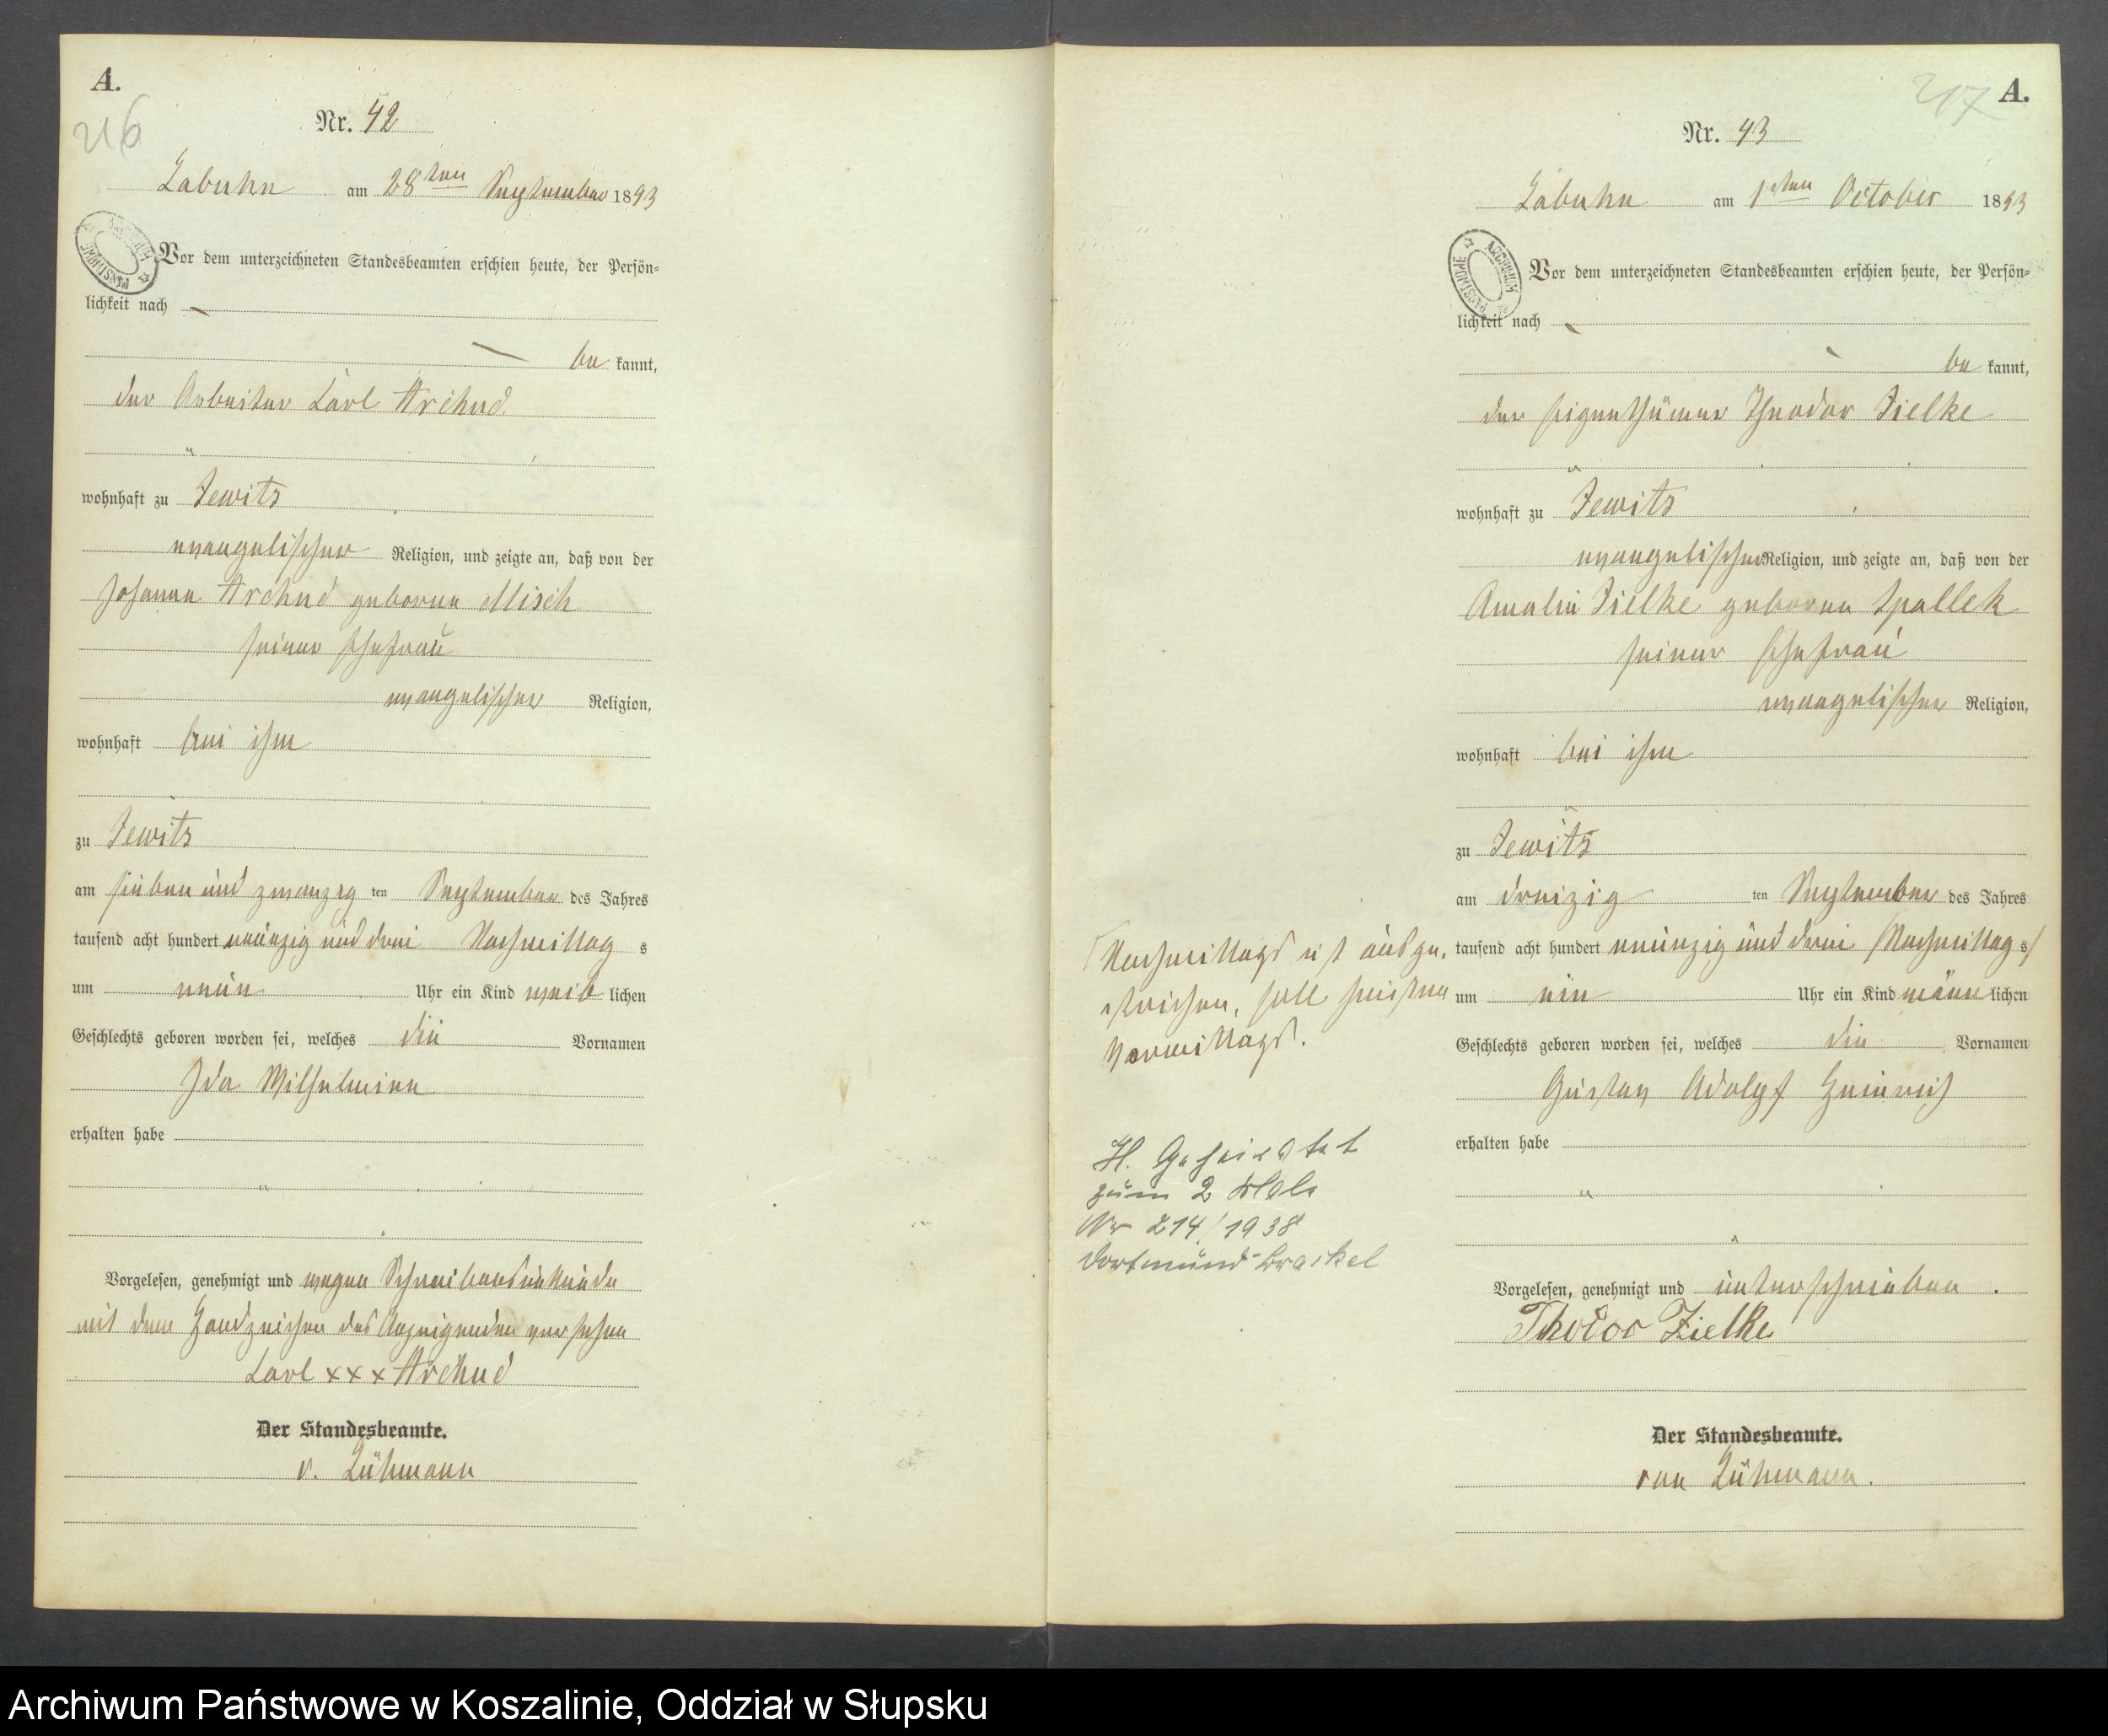 A.
216
Nr. 42
Labuhn am 28ten September 1893
Vor dem unterzeichneten Standesbeamten erschien heute, der Persön-
lichkeit nach
be kannt,
der Arbeiter Carl Archud
wohnhaft zu Jewitz
evangelischer Religion, und zeigte an, daß von der
Johanne Archud geborene Misch
seiner Ehefrau
evangelischer Religion,
wohnhaft bei ihm
zu Jewitz
am sieben und zwanzig ten September des Jahres
tausend acht hundert neunzig und drei Nachmittag s
um neun Uhr ein Kind weib lichen
Geschlechts geboren worden sei, welches die Vornamen
Ida Wilhelmine
erhalten habe
Vorgelesen, genehmigt und wegen Schreibensunkunde
mit dem Handzeichen des Anzeigenden versehen
Carl xxx Archud
Der Standesbeamte.
v. Lühmann
A.
217
Nr. 43
Labuhn am 1sten October 1893
ARCHIWUM PAŃSTWOWE
Vor dem unterzeichneten Standesbeamten erschien heute, der Persön-
lichkeit nach
be kannt,
der Eigenthümer Theodor Zielke
wohnhaft zu Jewitz
evangelischer Religion, und zeigte an, daß von der
Amalie Zielke geborene Spallek
seiner Ehefrau
evangelischer Religion,
wohnhaft bei ihm
zu Jewitz
am dreizig ten September des Jahres
tausend acht hundert neunzig und drei /Nachmittag s/
um ein Uhr ein Kind männ lichen
Geschlechts geboren worden sei, welches die Vornamen
Gustav Adolph Heinrich
erhalten habe
Vorgelesen, genehmigt und unterschrieben.
Theodor Zielke
Der Standesbeamte.
von Lühmann.
Nachmittags ist ausge.
strichen, soll heißen
Vormittags.
H. Geheiratet
zum 2 Male
Nr 214/1938
Dortmund-Brackel
Archiwum Państwowe w Koszalinie, Oddział w Słupsku